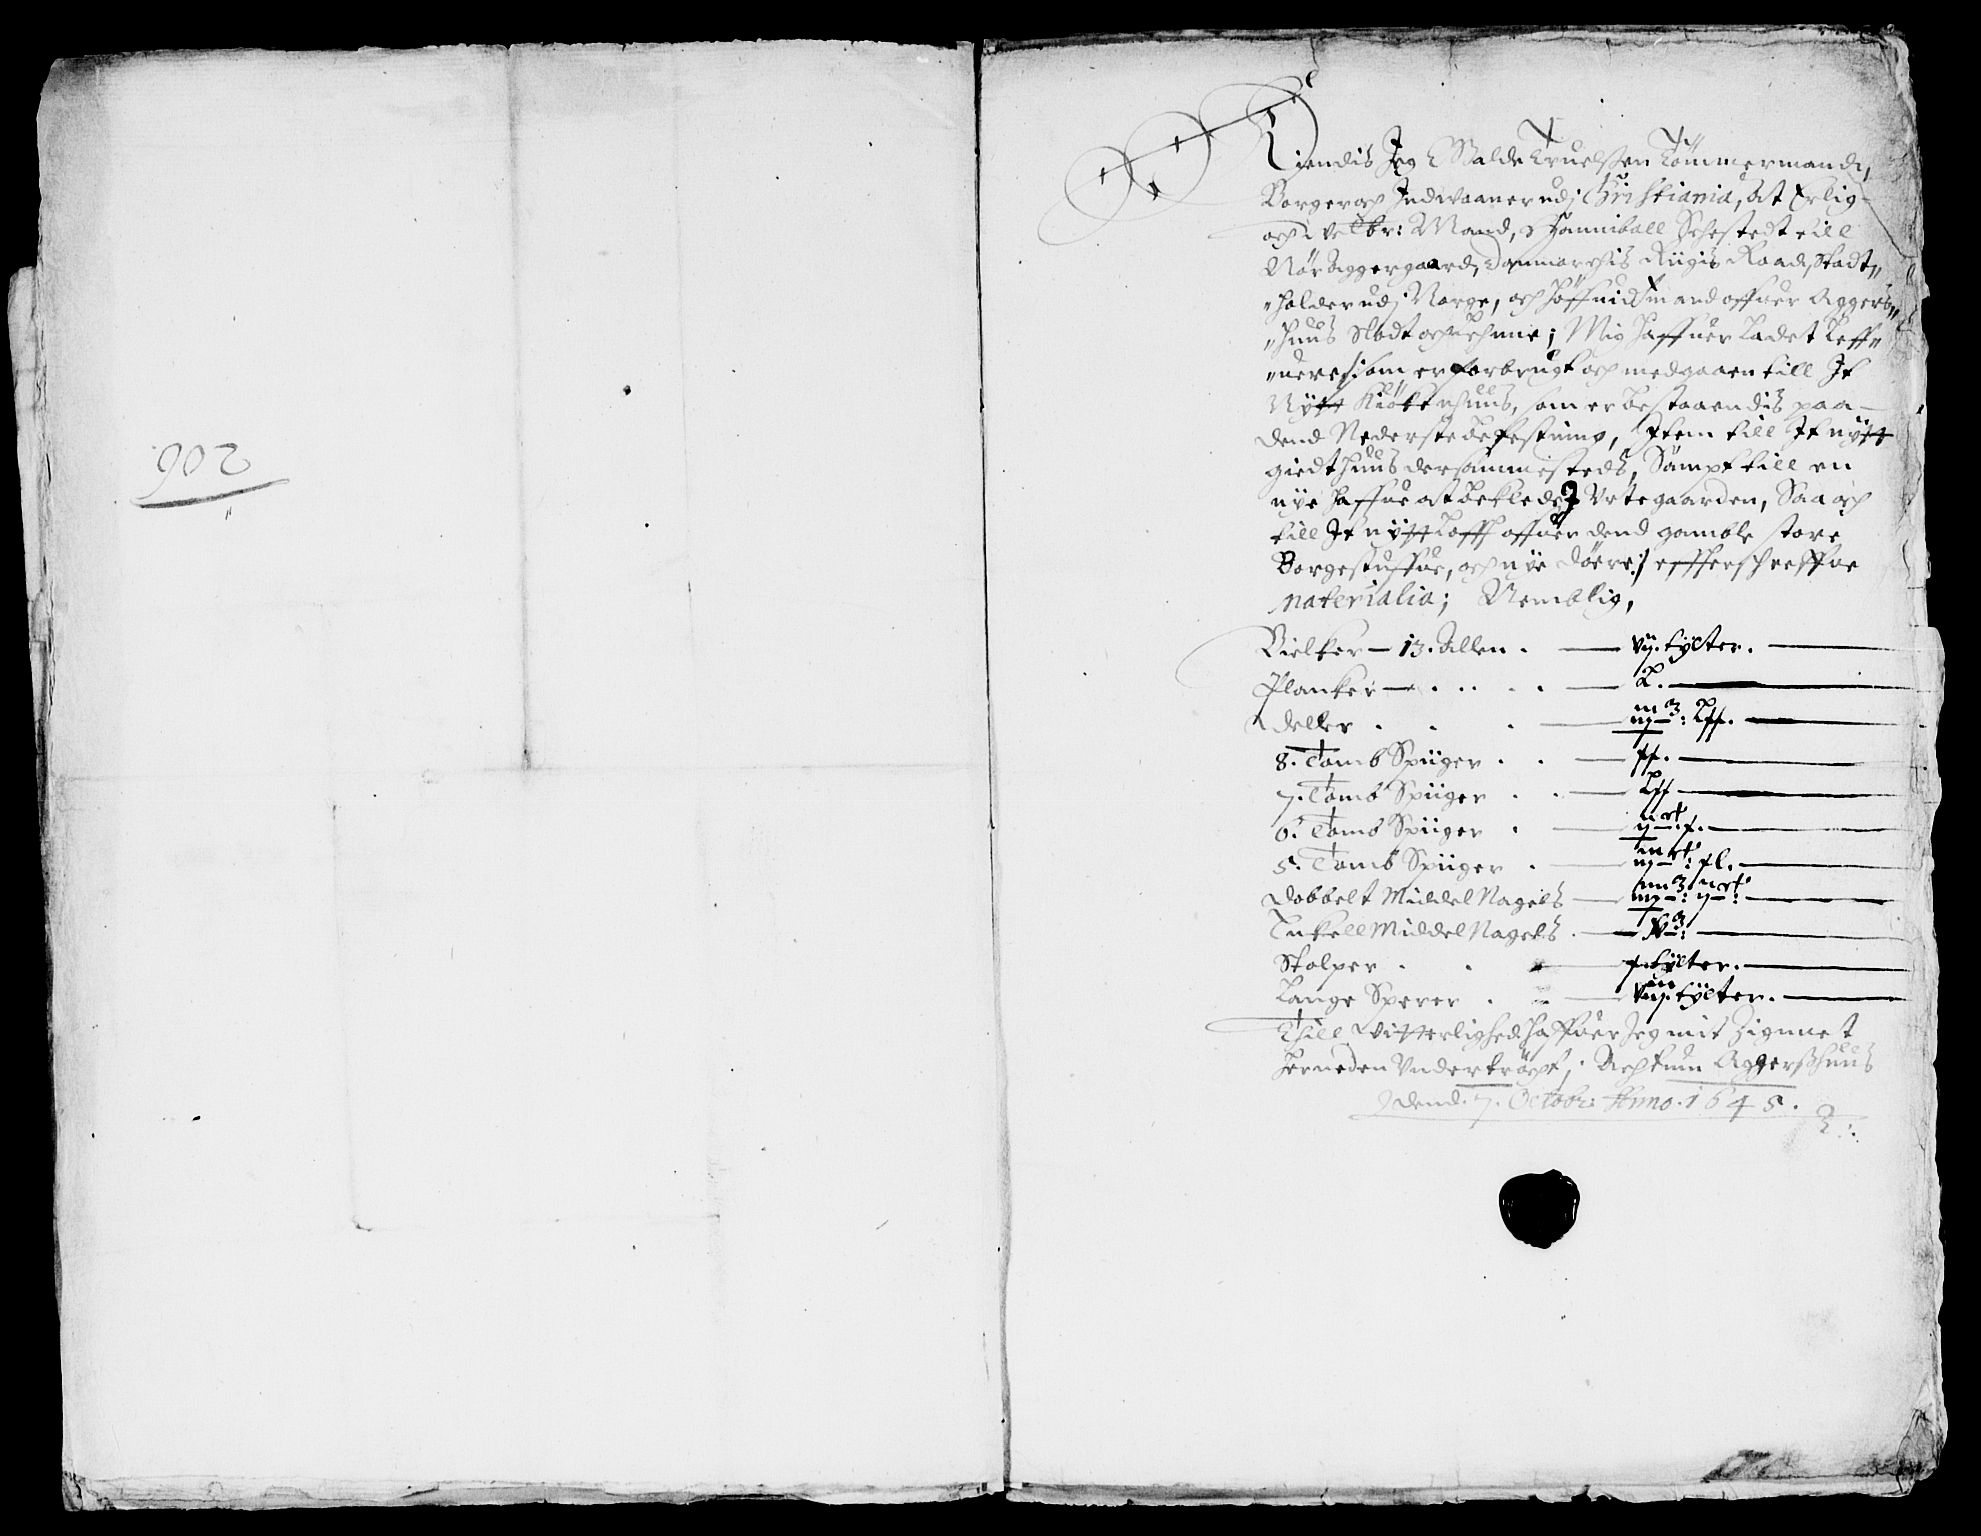 902
Kiendis Jeg Halde Truelssen Tømmermand,
Borger och Indwaaner udj Christiania, At Erlig
och Welbr: Mand, Hanniball Sehestedt till
Nøraggergaard, Danmarchis Riigis Raad, Stadt„
„holder udj Norge, och Høffuidtzmand offuer Aggers„
„huus Slodt och Lehnne; Mig haffuer ladet Leff„
„uere /: som er forbrugt och medgaaen till It
Nytt Kiøkenhuus, som er bestaaendis paa
dend Nederste befestning, Item till It nytt
giedthuus dersammesteds, Sampt till en
nye haffue at beklede I Urtegaarden, Saa och
till It nytt Lofft offuer dend gamble store
Borgestuffue, och nye døere :/ effterschreffne
Materialia; Nemblig,
Bielker — 13. Allen . — vij. tylter. —
Planker — . . . . . — L. —
deller . . . —
8. Tomb Spiiger . . —
7. Tomb Spiiger . . —
6. Tomb Spiiger . —
5. Tomb Spiiger . —
Dobbelt Middel Nagels —
Enkell Middel Nagels . —
Stolper . . — tylter. —
Lange Sperer . — tylter. —
Thill Vitterlighed haffuer Jeg mit Zignnet
herneden Undertrøcht, Actum Aggerszhuus
dend. 7. Octobr: Anno. 1645.